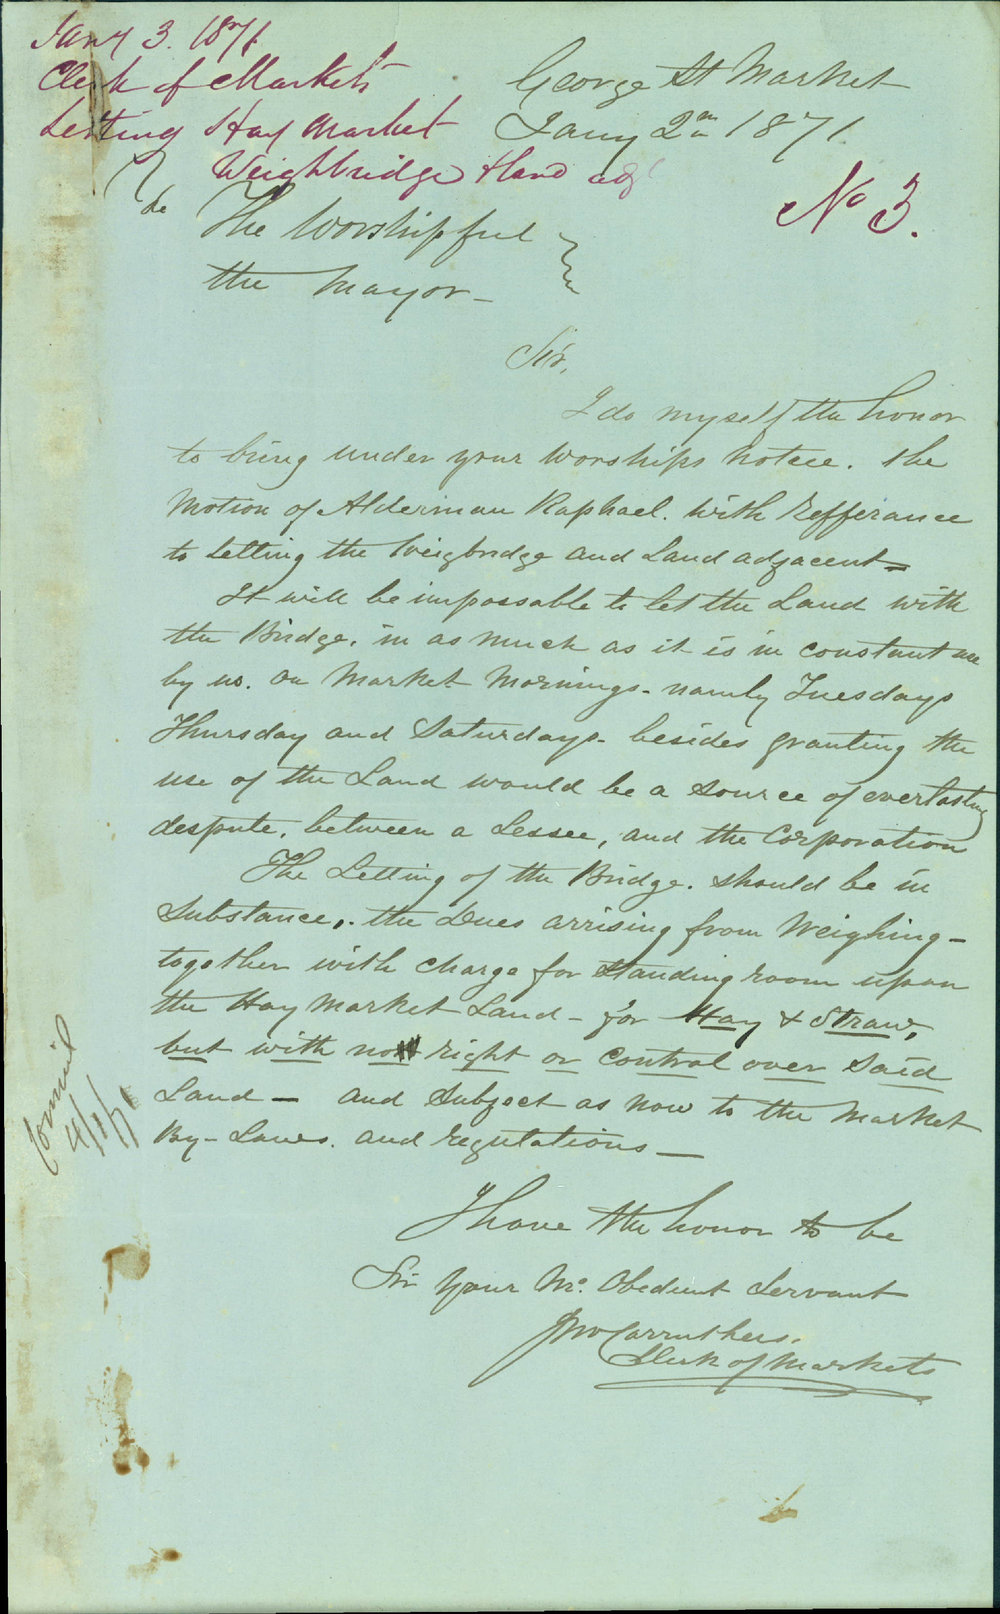 Jany 3. 1871
Clerk of Markets
Letting Hay Market
Weighbridge & land adj
No 3.
George St Market
Jany 2nd 1871.
The Worshipful
the Mayor—
Sir,
I do myself the honor
to bring under your Worships notice. the
Motion of Alderman Raphael. with refferance
to Letting the Weigbridge and Land adjacent—
It will be impossable to let the Land with
the Bridge. in as much as it is in constant use
by us. on Market Mornings- namely Tuesdays
Thursday and Saturdays- besides granting the
use of the Land would be a source of everlasting
despute. between a Lessee, and the Corporation
The Letting of the Bridge. should be in
Substance,. the Dues arrising from Weighing-
together with charge for Standing room upon
the Hay Market Land- for Hay & Straw,
but with no right or control over Said
Land— and Subject as now to the Market
By-Laws. and regulations—
I have the honor to be
Sir your Mo. Obedient Servant
Jno Carruthers.
Clerk of Markets
4/1/71